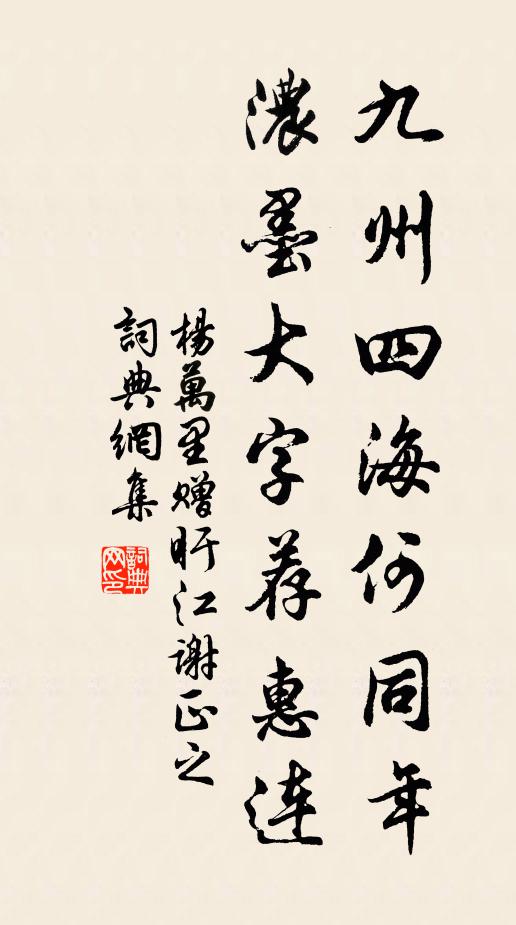 九州四海何同年
濃墨大字荐惠連
楊萬里贈盱江謝正之
詞典網集
詞典網印